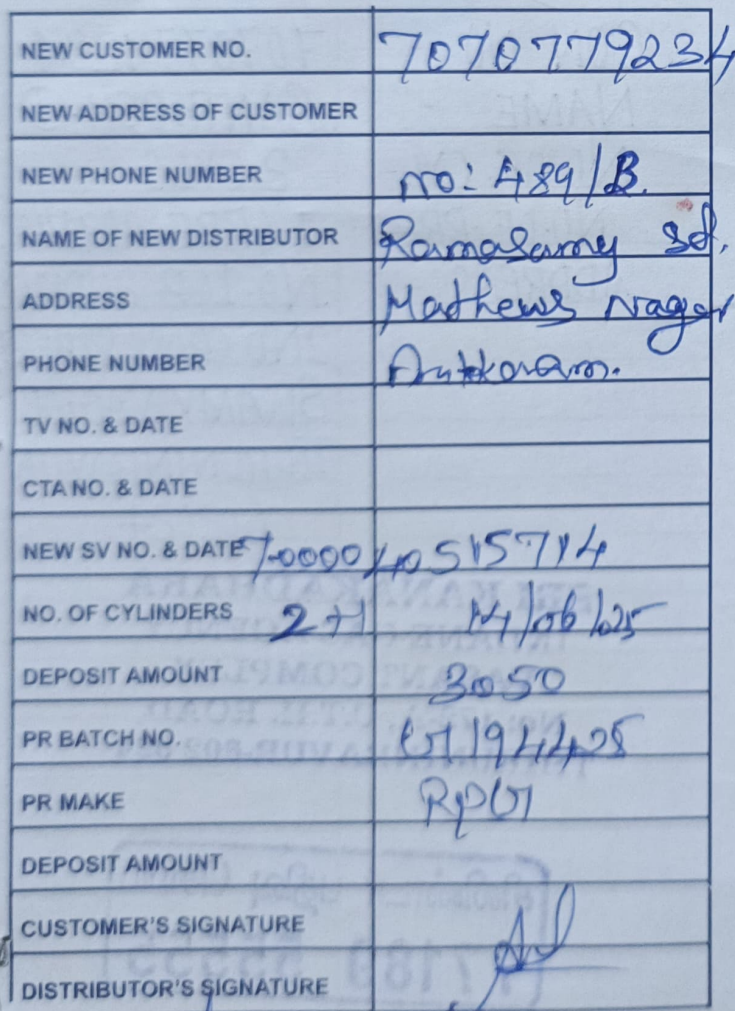 NEW CUSTOMER NO. 7070779234
NEW ADDRESS OF CUSTOMER
NEW PHONE NUMBER no: 489/B.
NAME OF NEW DISTRIBUTOR Ramasamy sd.
ADDRESS Mathews Nagar
PHONE NUMBER
TV NO. & DATE
CTA NO. & DATE
NEW SV NO. & DATE 7000040515714
NO. OF CYLINDERS 2+1 14/06/25
DEPOSIT AMOUNT 3050
PR BATCH NO.
PR MAKE
DEPOSIT AMOUNT
CUSTOMER'S SIGNATURE
DISTRIBUTOR'S SIGNATURE